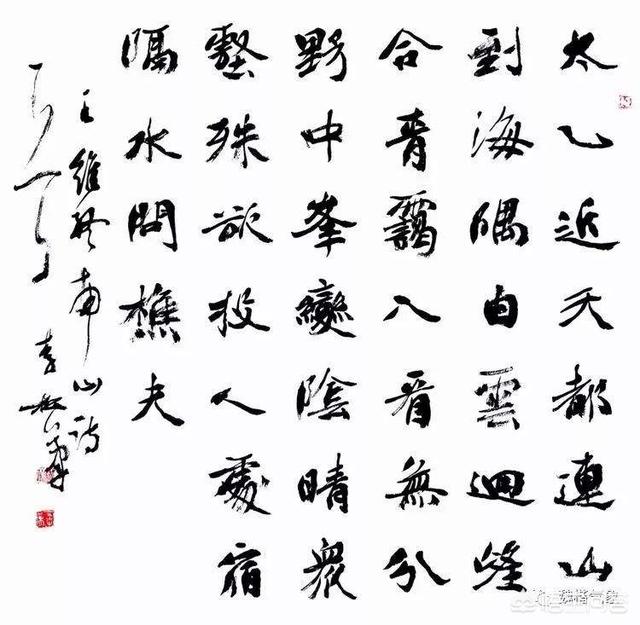 太乙近天都連山
到海隅白雲迴望
合青靄入看無分
野中峯變陰晴衆
壑殊欲投人處宿
隔水問樵夫
王維終南山詩
李